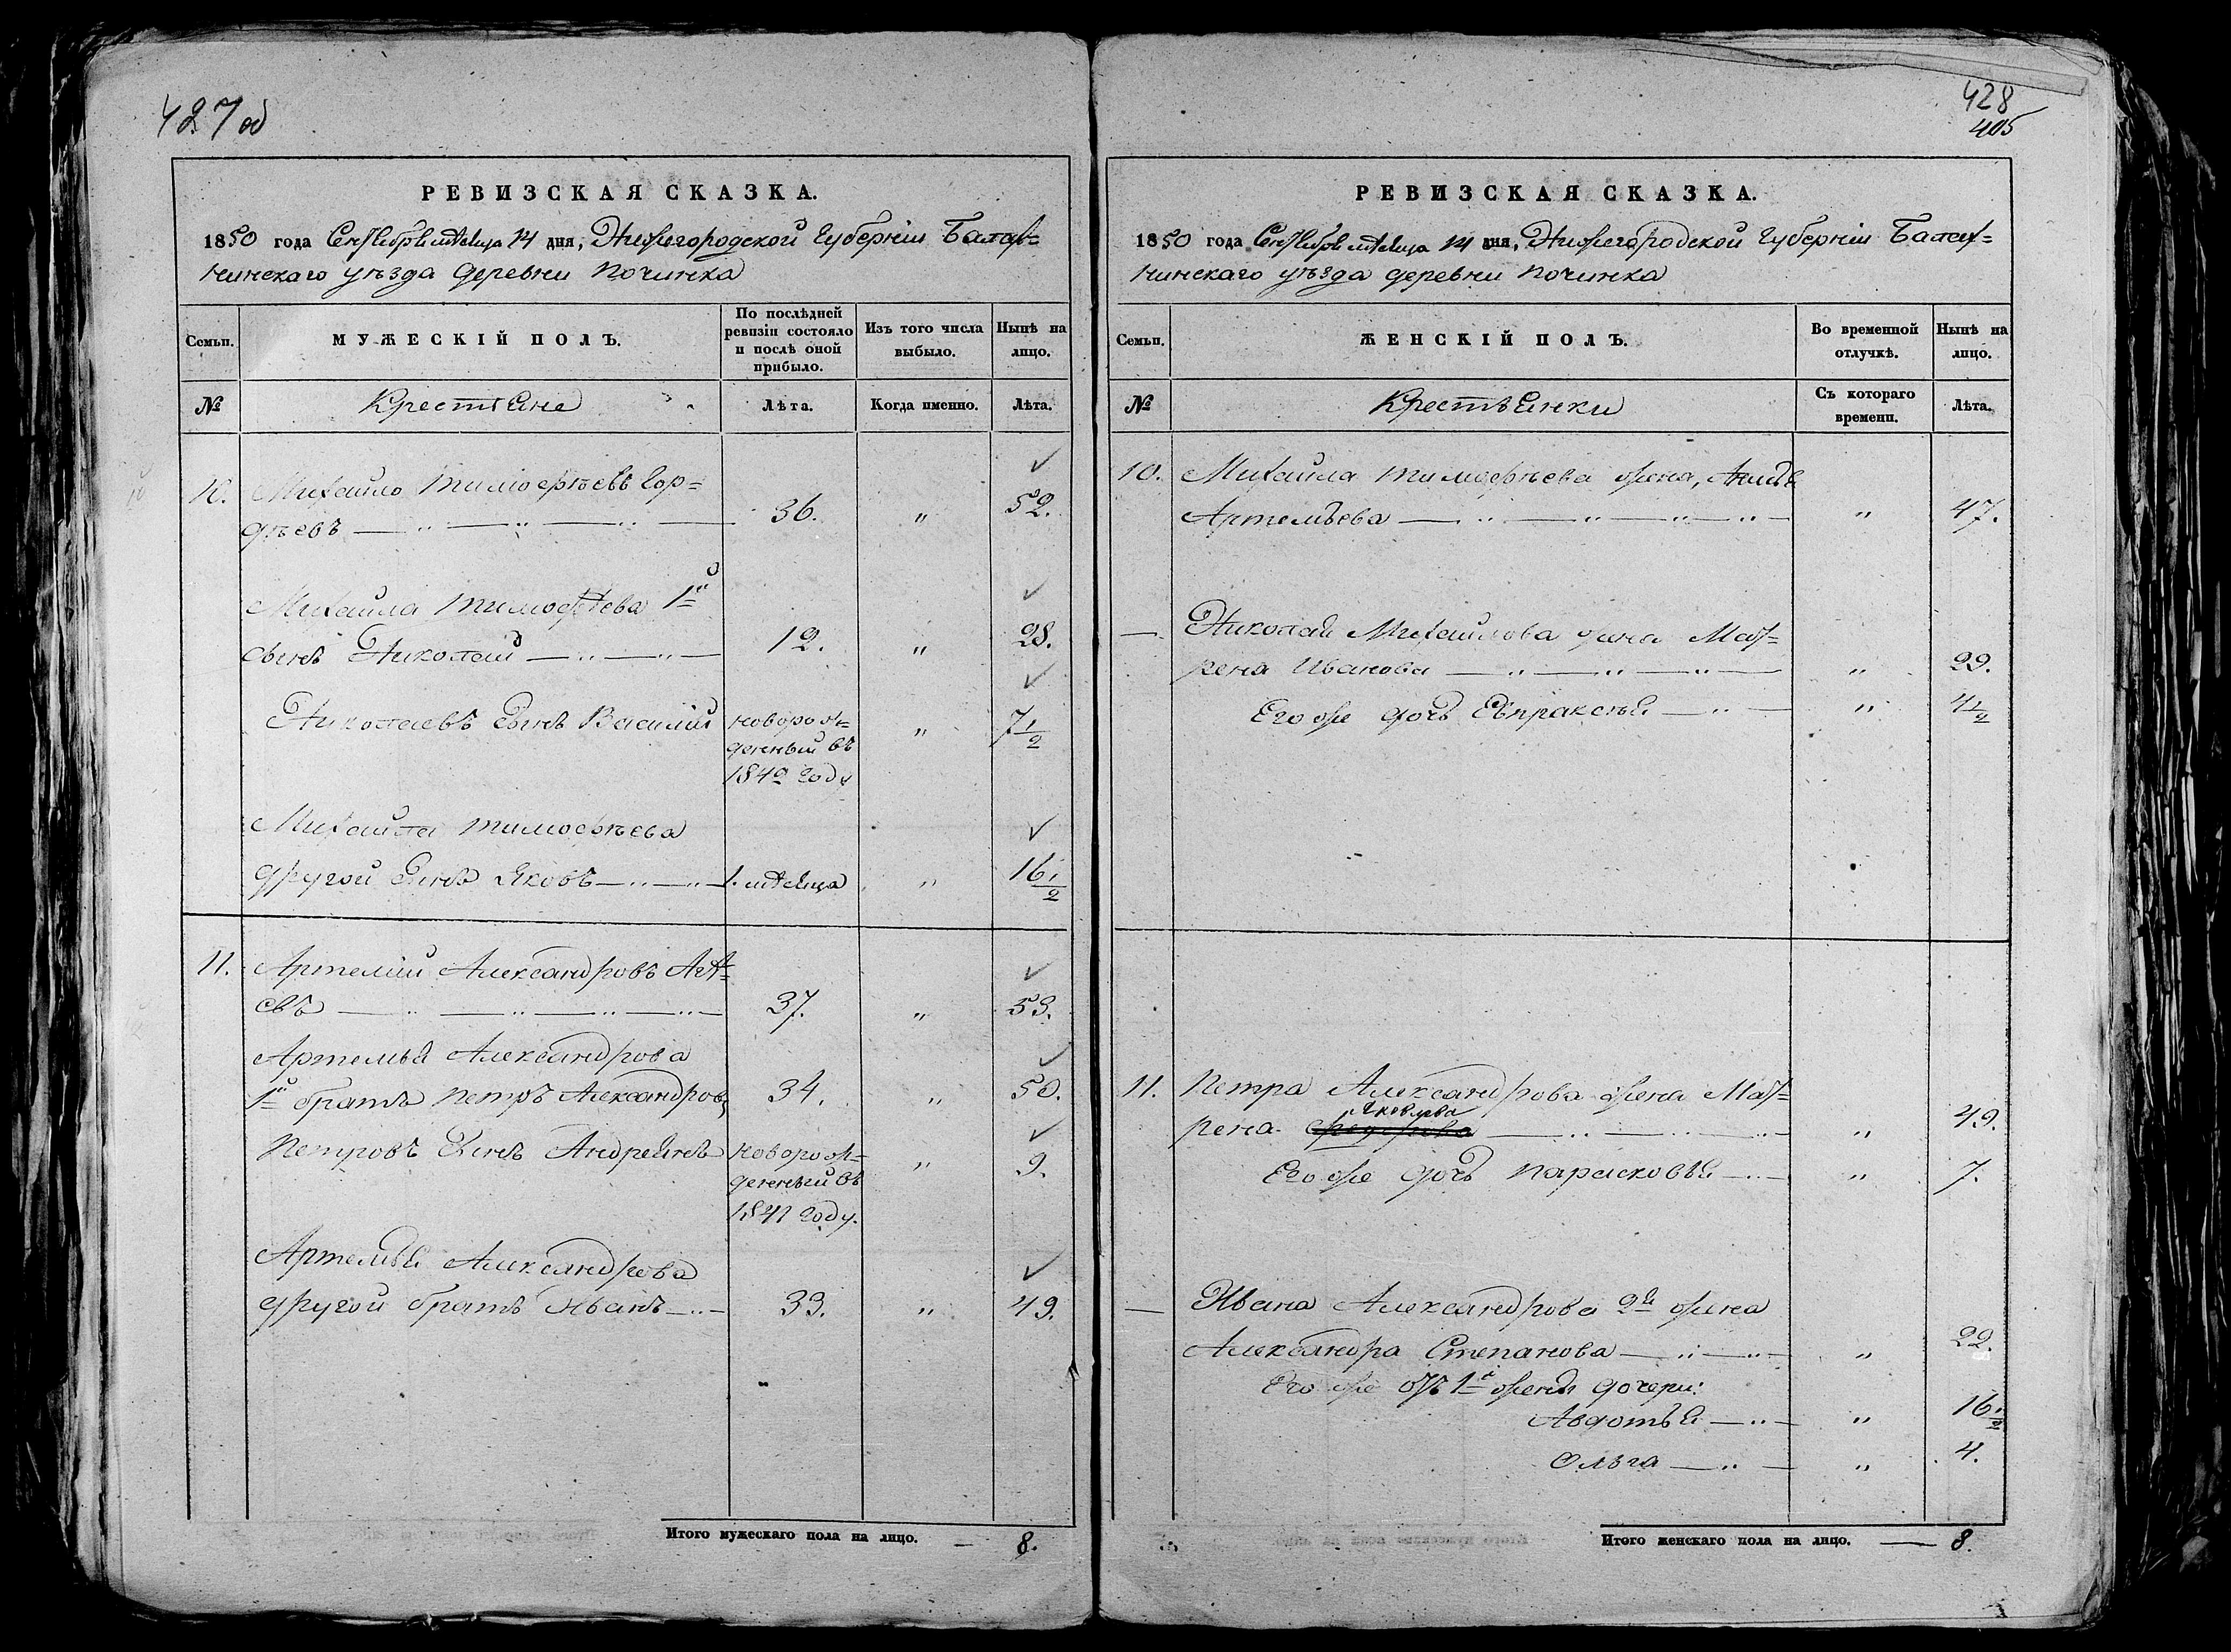 427 об
РЕВИЗСКАЯ СКАЗКА.
1850 года Сентября мѣсяца 14 дня, Нижегородской Губерніи Балах=
нинскаго уѣзда деревни Починка
Семьи.
МУЖЕСКІЙ ПОЛЪ.
По послѣдней ревизіи состояло и послѣ оной прибыло.
Изъ того числа выбыло.
Нынѣ на лицо.
№
Крестьяне
Лѣта.
Когда именно.
Лѣта.
10. Михайло Тимофѣевъ Гор=
дѣевъ 36. " 52.
Михайла Тимофѣева 1й
сынъ Николай 12. " 28.
Николаевъ сынъ Василій новорож= " 7 1/2
денный въ
1842 году
Михайла Тимофѣева
другой сынъ Яковъ 1. мѣсяца " 16 1/2
11. Артемій Александровъ
евъ 37. " 53.
Артемья Александрова
1й братъ Петръ Александровъ 34. " 50.
Петровъ сынъ Андреянъ новорож= " 9.
денный въ
1841 году.
Артемья Александрова
другой братъ Иванъ 33. " 49.
Итого мужескаго пола на лицо. — 8.
428
405
РЕВИЗСКАЯ СКАЗКА.
1850 года Сентября мѣсяца 14 дня, Нижегородской Губерніи Балах=
нинскаго уѣзда деревни Починка
Семьи.
ЖЕНСКІЙ ПОЛЪ.
Во временной отлучкѣ.
Нынѣ на лицо.
№
Крестьянки
Съ котораго времени.
Лѣта.
10. Михайла Тимофѣева жена,
Артемьева " 47.
— Николая Михайлова жена Мат=
рена Иванова " 29.
Его же дочь Евпраксья " 4 1/2
11. Петра Александрова жена Мат=
Яковлева
рена Федорова " 49.
Его же дочь Парасковья " 7.
— Ивана Александрова 2я жена
Александра Степанова " 22.
Его же отъ 1й жены дочери:
Авдотья " 16 1/2
Ольга " 4.
Итого женскаго пола на лицо. — 8.